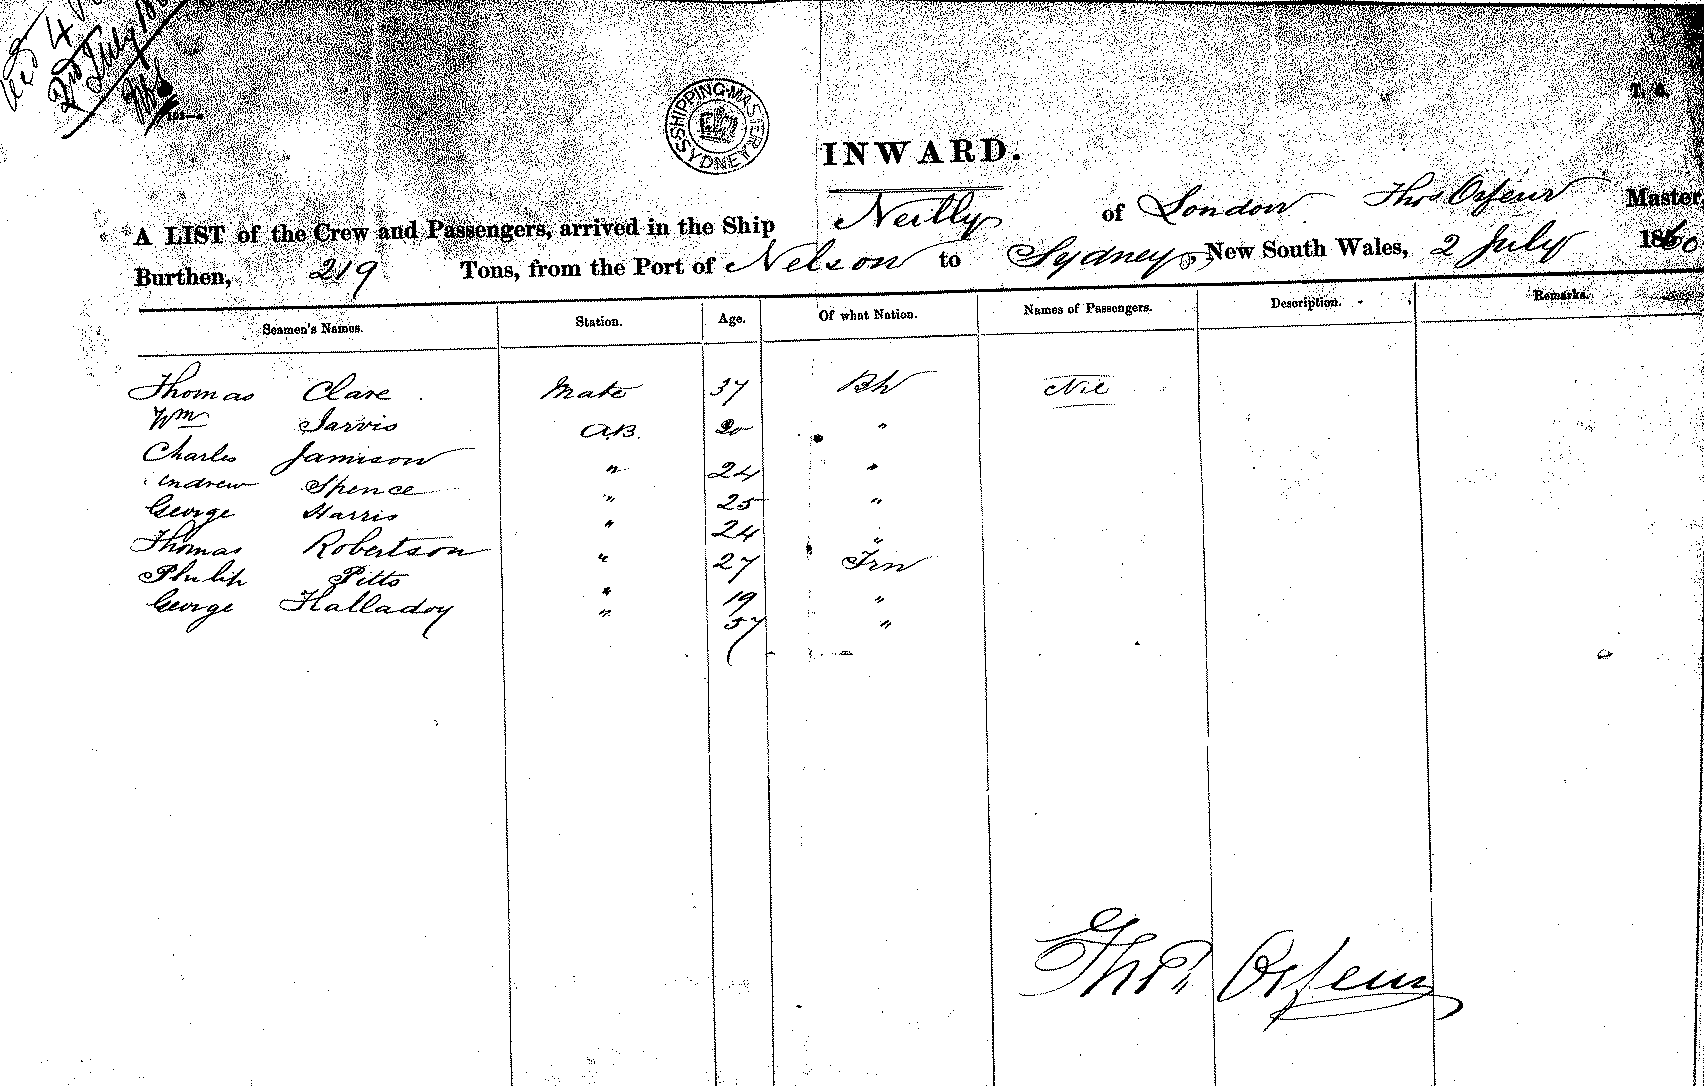 2nd July
SHIPPING MASTER SYDNEY
INWARD.
A LIST of the Crew and Passengers, arrived in the Ship Neilly of London Thos Orfeur Master,
Burthen, 219 Tons, from the Port of Nelson to Sydney, New South Wales, 2 July 1860
Seamen's Names. Station. Age. Of what Nation. Names of Passengers. Description. Remarks.
Thomas Clare Mate 37 Bh Nil
Wm Jarvis A.B. 20 "
Charles Jamison " 24 "
Andrew Spence " 25 "
George Harris " 24 "
Thomas Robertson " 27 Frn
Philip Pitts " 19 "
George Halladay " 57 "
Thos Orfeur